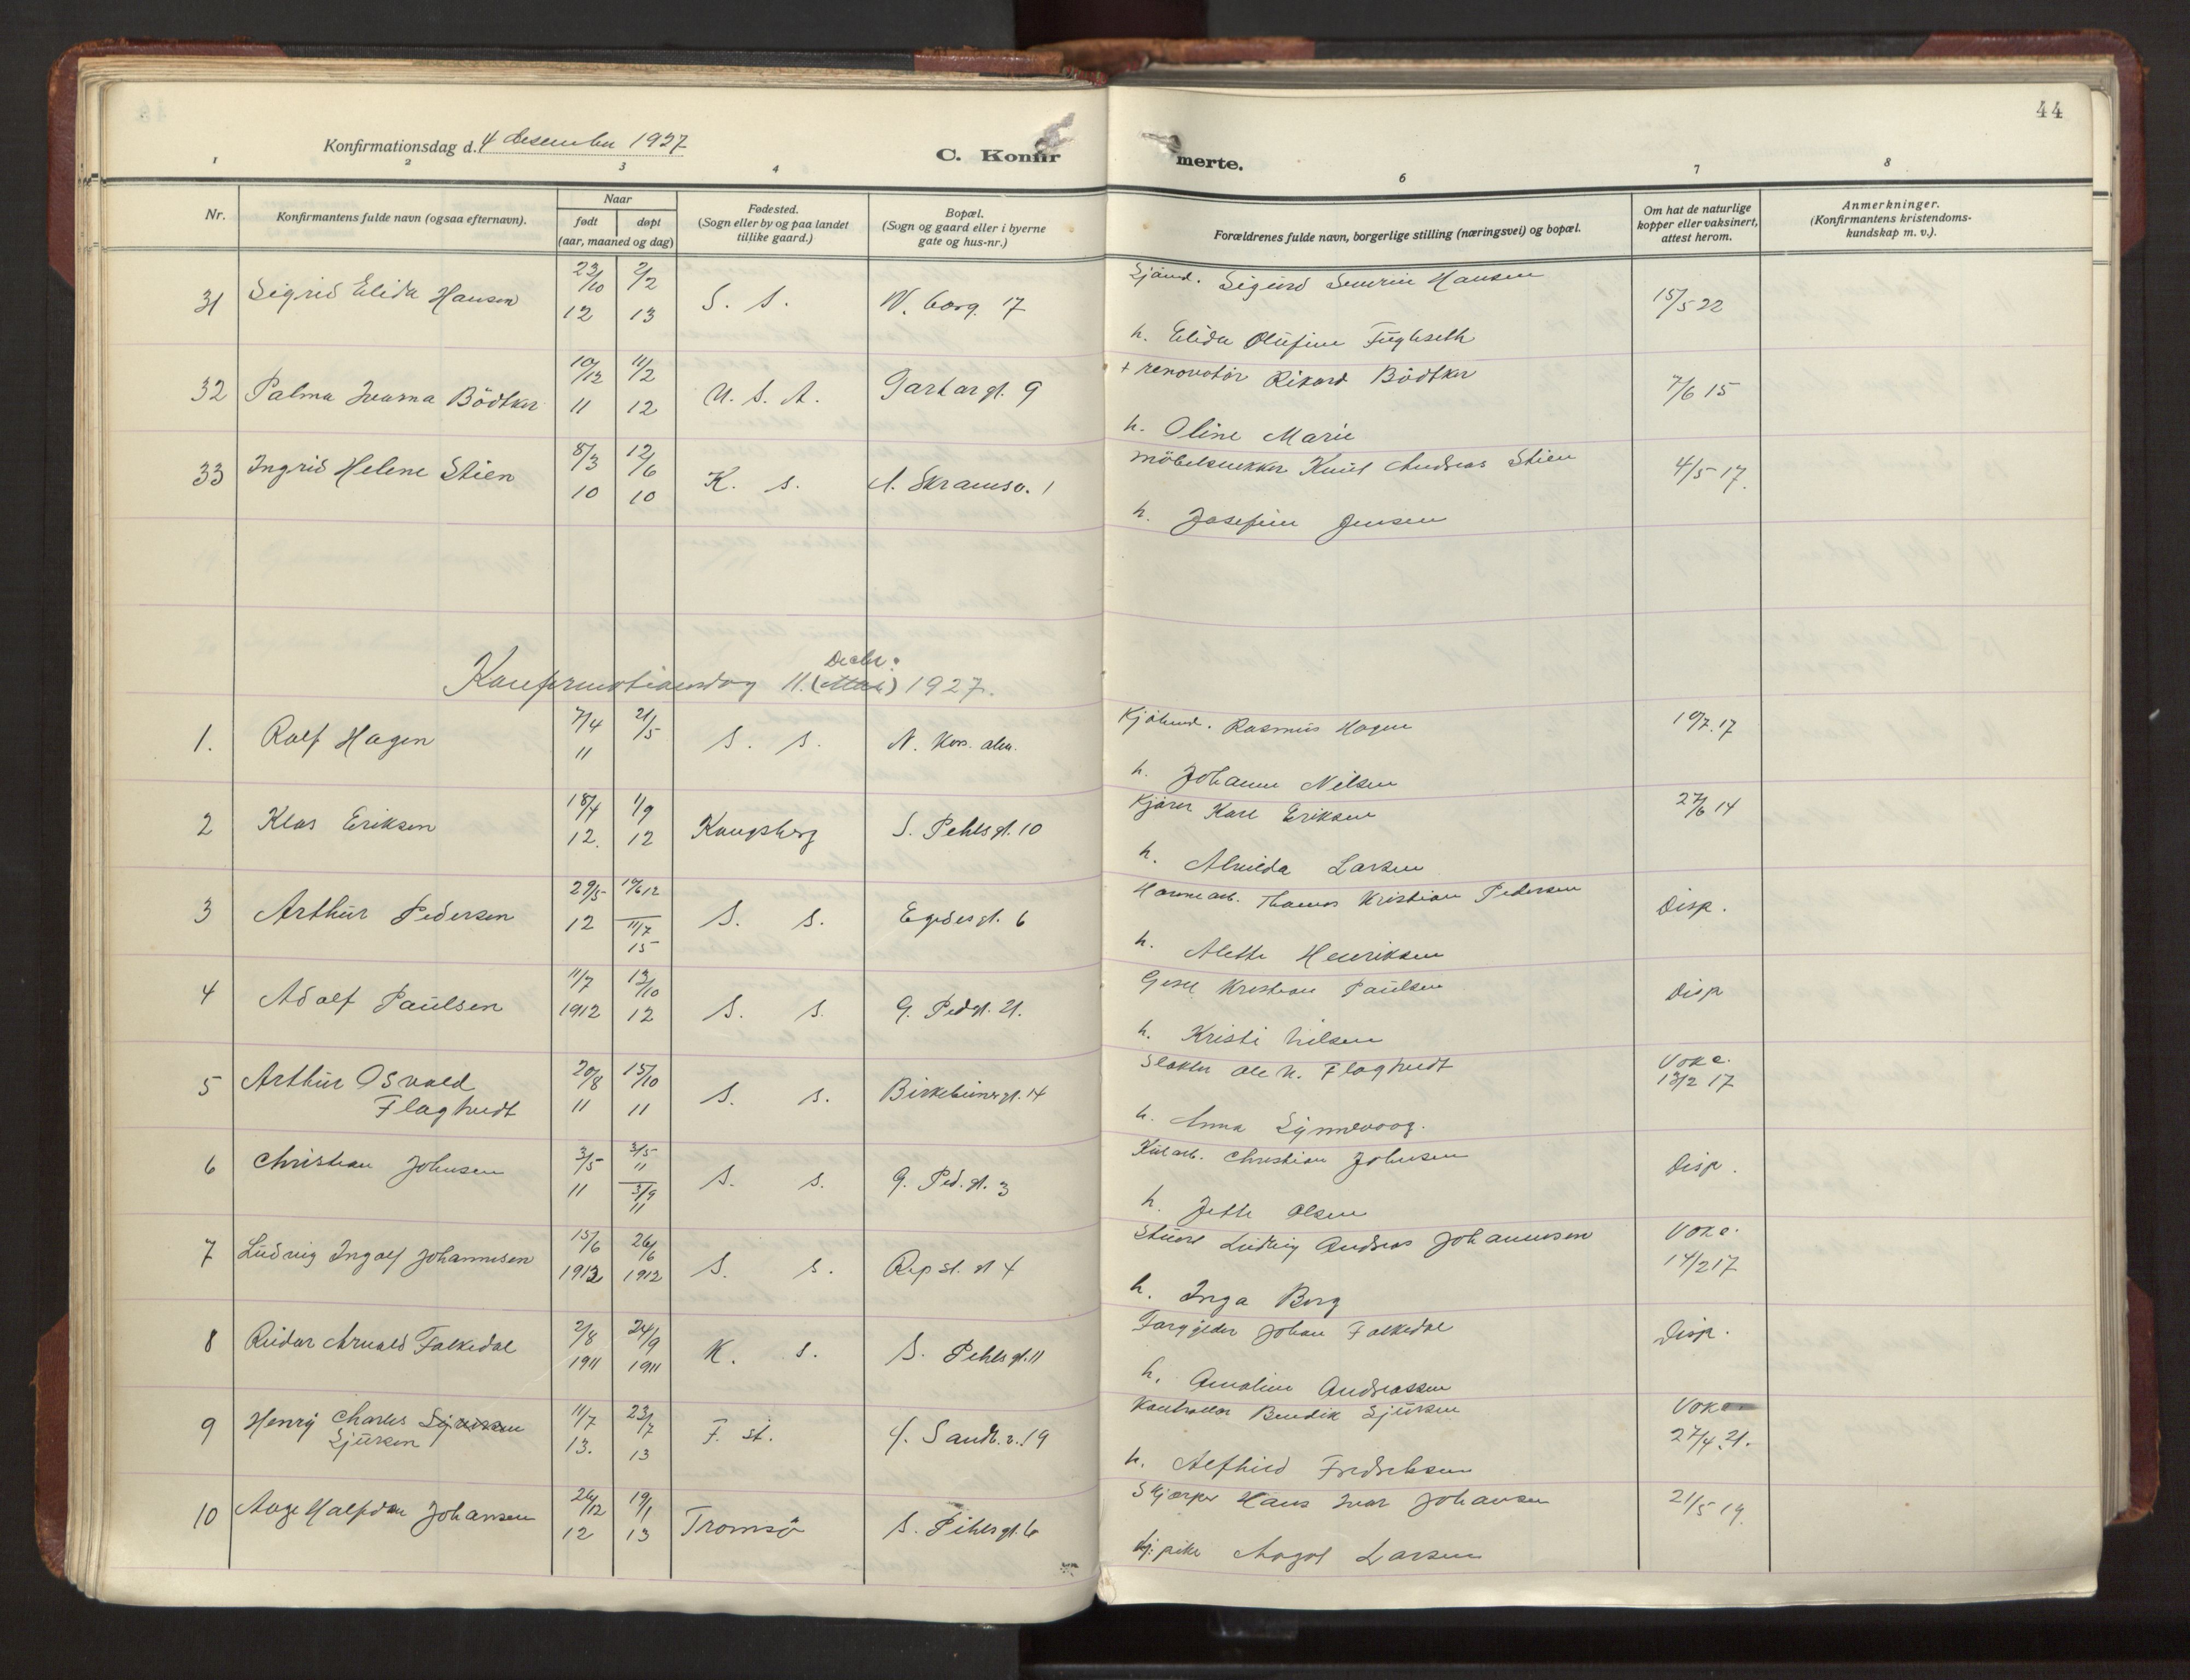 44
Konfirmationsdag d. 4 desember 1927
C. Konfir
merte.
1 2 3 4 6 7 8
Nr.
Konfirmantens fulde navn (ogsaa efternavn).
Naar
født døpt
(aar, maaned og dag)
Fødested.
(Sogn eller by og paa landet
tillike gaard.)
Bopæl.
(Sogn og gaard eller i byerne
gate og hus-nr.)
Forældrenes fulde navn, borgerlige stilling (næringsvei) og bopæl.
Om hat de naturlige
kopper eller vaksinert,
attest herom.
Anmerkninger.
(Konfirmantens kristendoms-
kundskap m. v.).
31 Sigrid Elida Hansen 23/10 12 2/2 13 S. s. W. borg. 17 Sjömd. Sigurd Severin Hansen 15/5 22
h. Elida Olufine Fuglseth
32 Palma Ivarna Bödtker 10/12 11 11/2 12 U. S. A. Gartargt. 9 + renovatör Rikard Bödtker 7/6 15
h. Oline Marie
33 Ingrid Helene Stien 8/3 10 12/6 10 K. s. A. Skramsv. 1 möbelsnekker Knut Andreas Stien 4/5 17.
h. Josefine Jensen
Konfirmationsdag 11. (Mai) Decbr. 1927.
1. Rolf Hagen 7/4 11 21/5 S. s. N. Kors. alm. Kjöbmd. Rasmus Hagen 10/7. 17
h. Johanne Nilsen
2 Klas Eriksen 18/4 12. 1/9 12 Kongsberg S. Pehlsgt. 10 Kjörer Karl Eriksen 27/6 14
h. Almilda Larsen
3 Arthur Pedersen 29/5 12 19/6 12 11/7 15 S. s. Egedesgt. 6 Havnearb. Thomas Kristian Pedersen Disp.
h. Alette Henriksen
4 Adolf Paulsen 11/7 1912 13/10 12 S. s. G. Pedgt. 21. Kristian Paulsen Disp
h. Kristi Nilsen
5 Arthur Osvald
Flaghudt 20/8 11 15/10 11 S. s. Birkebeinergt. 14 Slakter Ole N. Flaghudt Vokc. 13/2 17
h. Anna Synnevaag.
6 Christian Johnsen 3/5 11 3/5 11 3/9 11 S. s. G. Ped. gt. 3 Kularb. Christian Johnsen Disp.
h. Jette Olsen
7 Ludvig Ingolf Johannesen 15/6 1912 26/6 1912 S. s. Repsl. gt 4 Stuert Ludvig Andreas Johannesen Vokc. 14/2 17
h. Inga Berg
8 Reidar Arnold Falkedal 2/8 1911 24/9 1911 K. s. S. Pehlsgt. 11 Johan Falkedal Disp.
h. Amalie Andreassen
9 Henry Charles
Sjursen 11/7 13. 23/7 13 F. st. Y. Sandv. v. 19 Kontrollör Bendik Sjursen Vokc. 27/4. 21.
h. Alfhild Fredriksen
10 Aage Halfdan Johansen 26/12 12 19/1 13 Tromsö S. Pihlsgt. 6 Skjærper Hans Ivar Johansen 21/5 19.
tj: pike Aagot Larsen